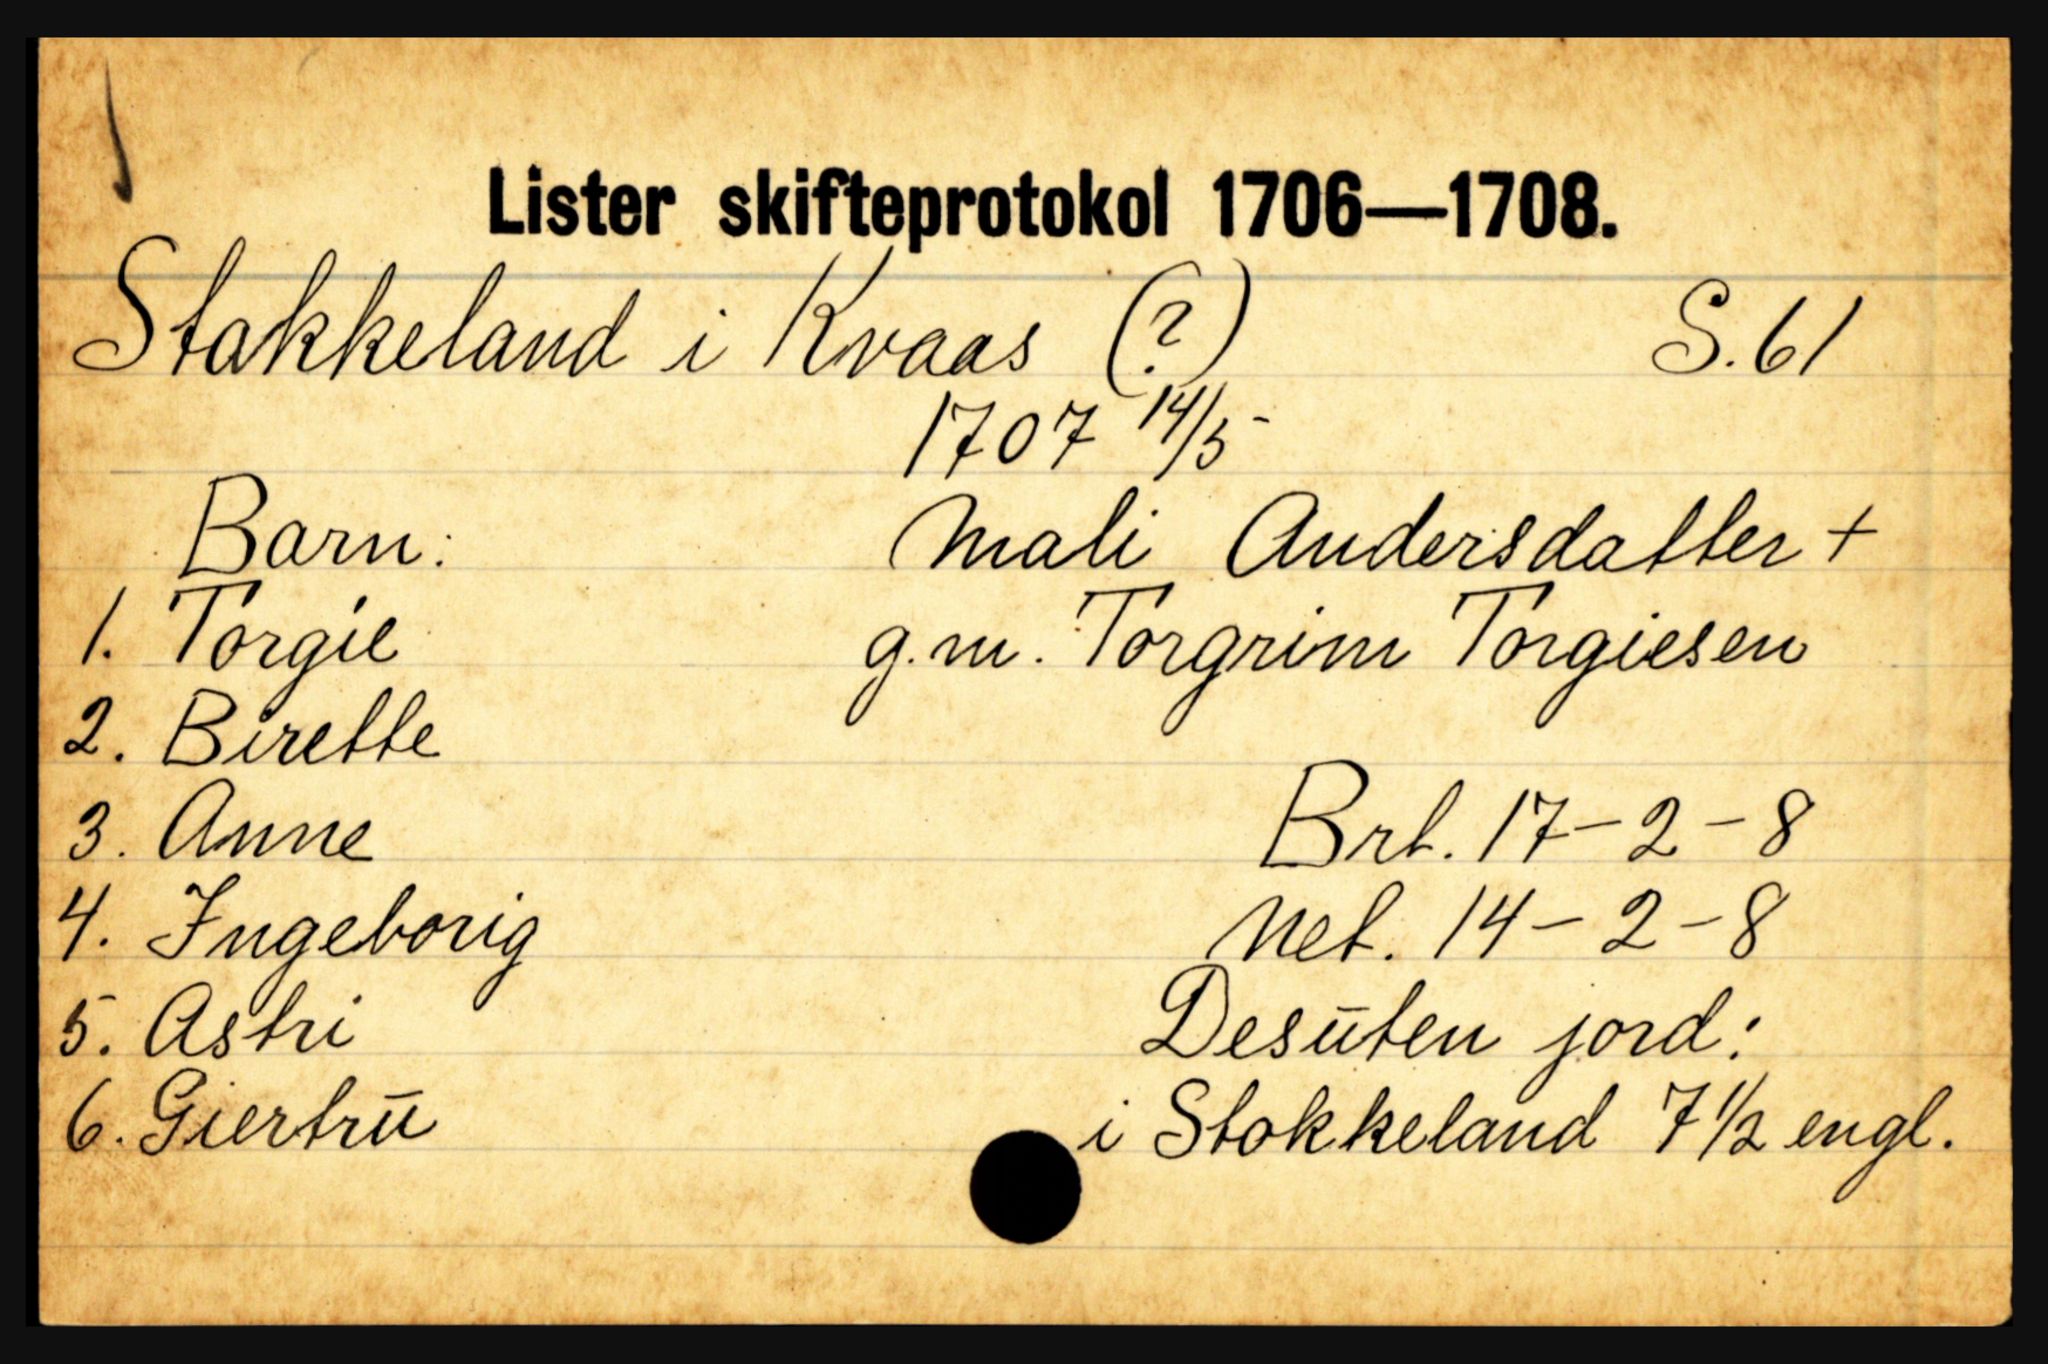 Lister skifteprotokol 1706—1708.
Stakkeland i Kvaas (?) S. 61
1707 14/5
Barn: Mali Andersdatter +
1. Torgie g.m. Torgrim Torgiesen
2. Birette
3. Anne Brt. 17-2-8
4. Ingeborig Net. 14-2-8
5. Astri Desūten jord:
6. Giertrū i Stokkeland 7 1/2 engl.